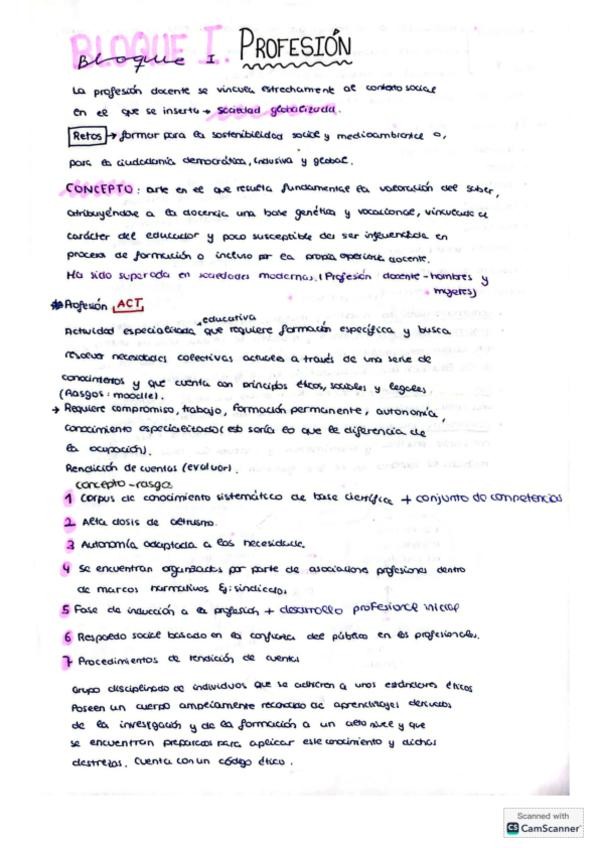 BLOQUE I. PROFESIÓN
Bloque I
La profesión docente se vincula estrechamente al contexto social
en el que se inserta → sociedad globalizada.
Retos → formar para la sostenibilidad social y medioambiente o,
para la ciudadanía democrática, inclusiva y global.
CONCEPTO: arte en el que resulta fundamental la valoración del saber,
atribuyéndose a la docencia una base genética y vocacional, vinculada al
carácter del educador y poco susceptible de ser influenciada en
proceso de formación o incluso por la propia experiencia docente.
Ha sido superada en sociedades modernas. (Profesión docente - hombres y
mujeres)
Profesión ACT.
educativa
Actividad especializada que requiere formación específica y busca
resolver necesidades colectivas actuales a través de una serie de
conocimientos y que cuenta con principios éticos, sociales y legales.
(Rasgos: moodle).
→ Requiere compromiso, trabajo, formación permanente, autonomía,
conocimiento especializado (esto sería lo que le diferencia de
la ocupación).
Rendición de cuentas (evaluar).
concepto-rasgo
1 Corpus de conocimiento sistemático de base científica + conjunto de competencias
2 Alta dosis de altruismo.
3 Autonomía adaptada a las necesidade.
4 Se encuentran organizados por parte de asociaciones profesiones dentro
de marcos normativos Ej: sindicatos
5 Fase de inducción a la profesión + desarrollo profesional inicial
6 Respaldo social basado en la confianza del público en los profesionales.
7 Procedimientos de rendición de cuentas
Grupo disciplinado de individuos que se adhieren a unos estándares éticos
Poseen un cuerpo ampliamente reconocido de aprendizajes derivados
de la investigación y de la formación a un alto nivel y que
se encuentran preparados para aplicar este conocimiento y dichas
destrezas. Cuenta con un código ético.
Scanned with
CS CamScanner